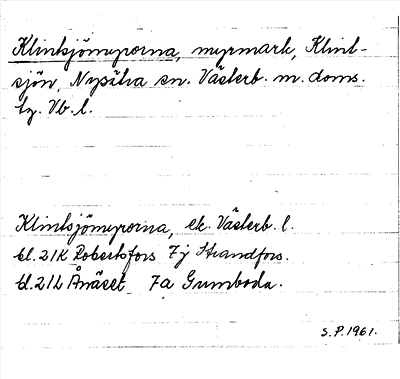 Klintsjömyrorna, myrmark, Klint-
sjön, Nysätra sn. Västerb. m. doms.
tg. Vb. l.
Klintsjömyrorna, ek. Västerb. l.
bl. 21K Robertsfors 7j Strandfors.
bl. 21L Ånäset 7a Gumboda.
S.P. 1961.